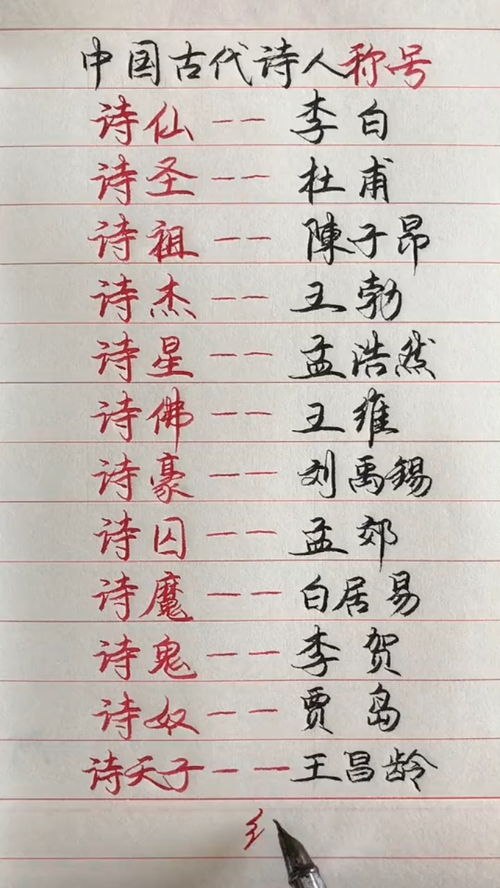 中国古代诗人称号
诗仙——李白
诗圣——杜甫
诗祖——陳子昂
诗杰——王勃
诗星——孟浩然
诗佛——王维
诗豪——刘禹锡
诗囚——孟郊
诗魔——白居易
诗鬼——李贺
诗奴——贾岛
诗天子——王昌龄